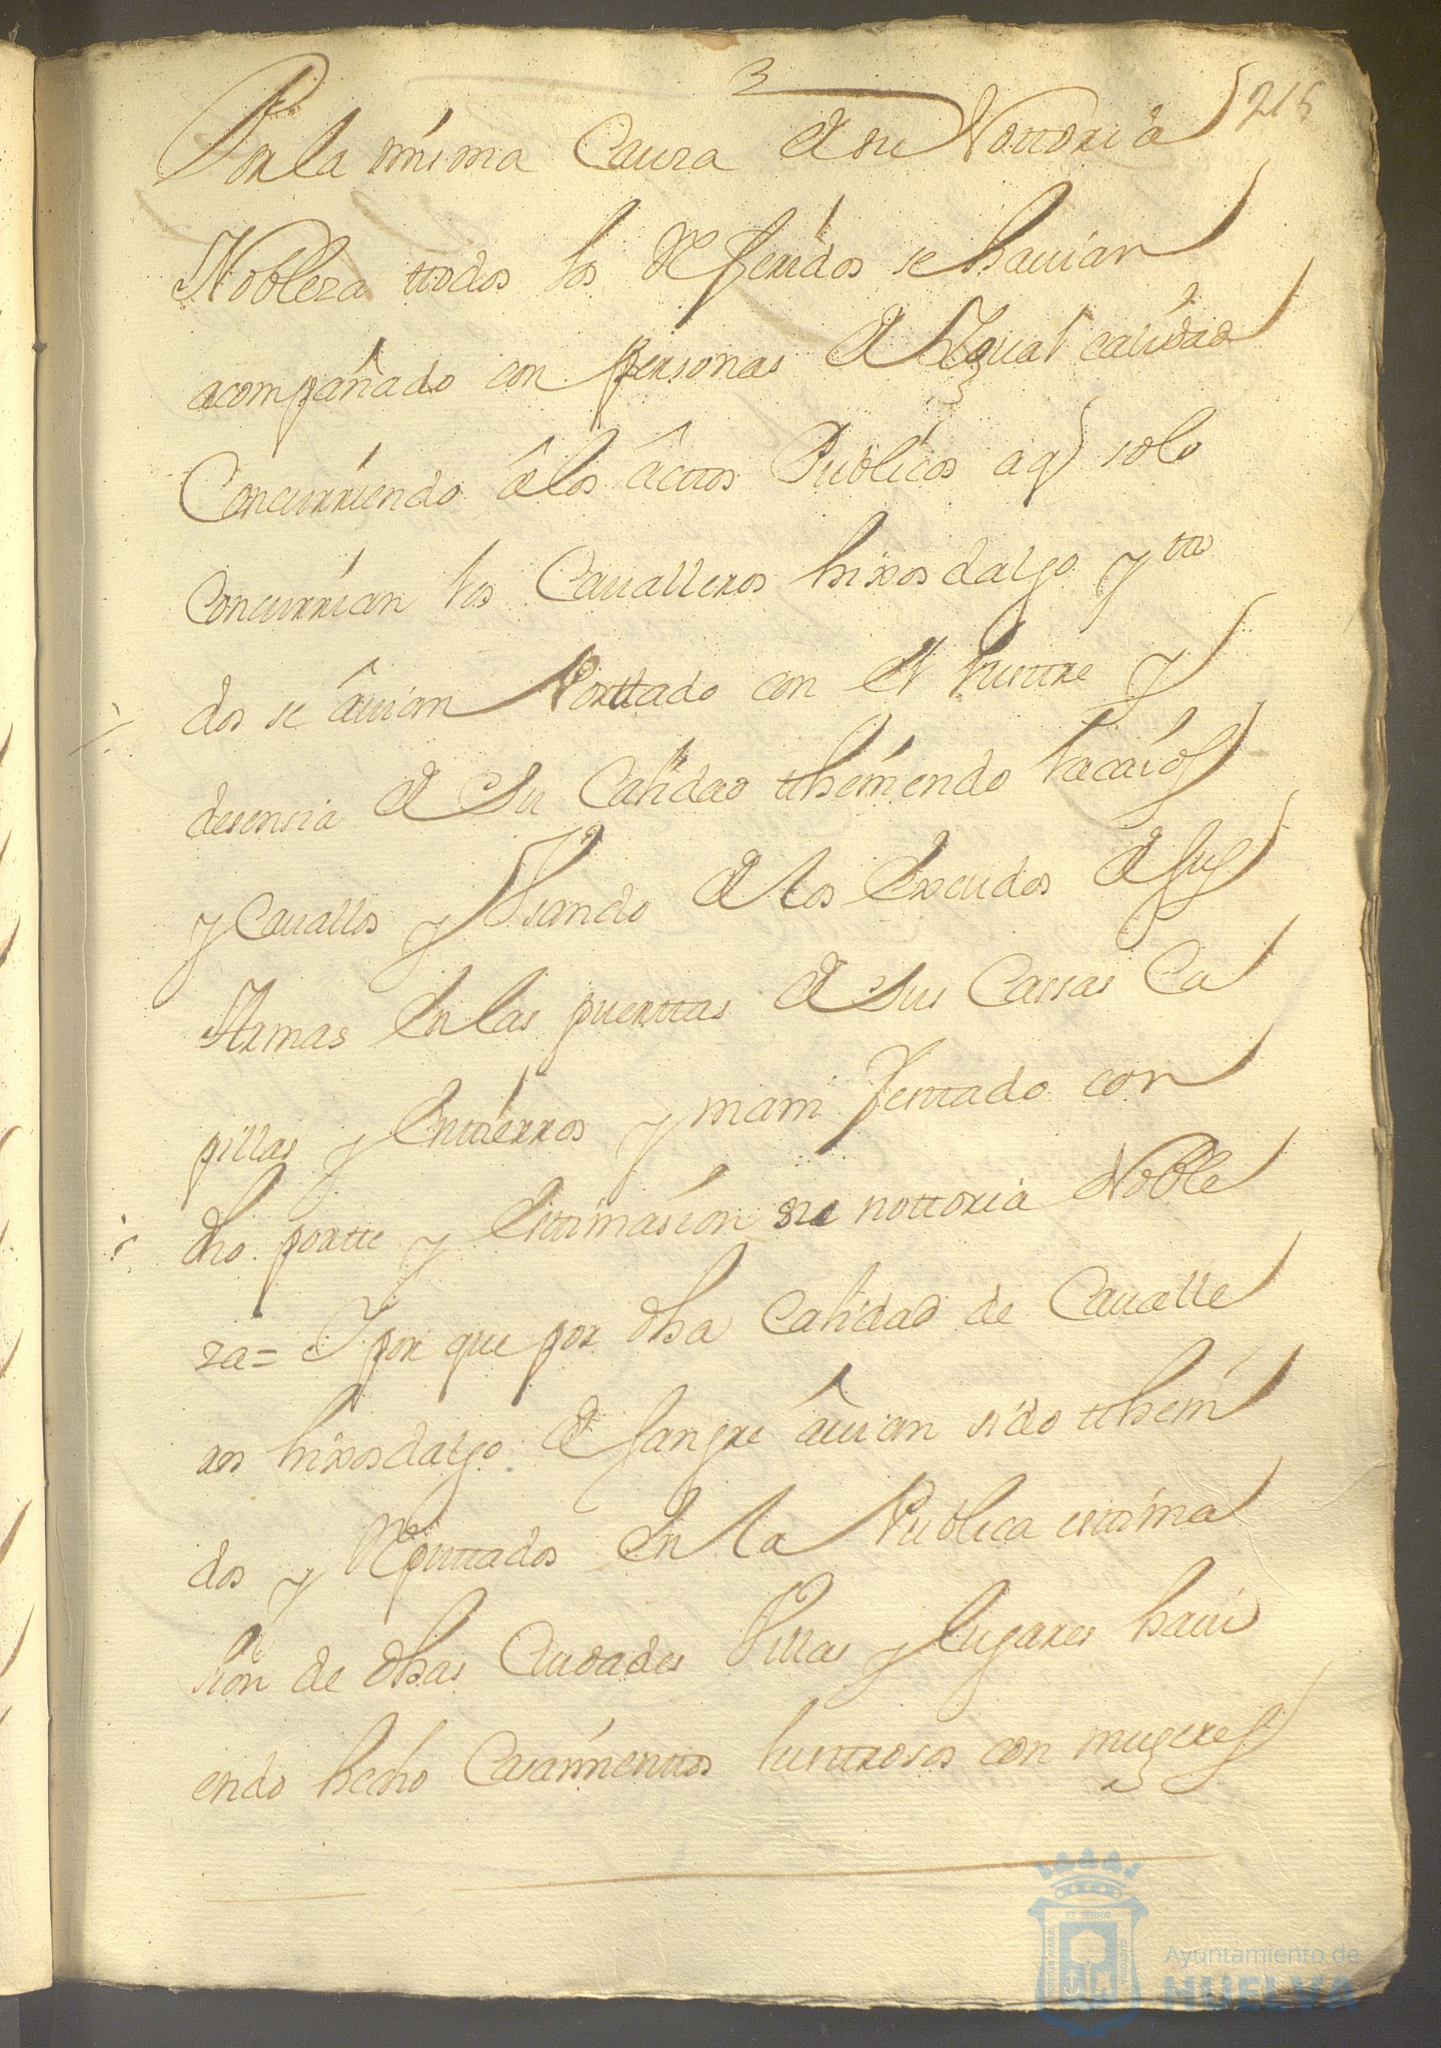 3
216
Por la misma Caussa de su Nottoria
Nobleza ttodos los Referidos se hauian
acompañado con personas de Ygual calidad
Concurriendo â los âcttos Publicos a q solo
Concurrian los Caualleros hixosdalgo y tto
dos se âuian Porttado con el lusttre y
desensia de su Calidad ttheniendo lacaios
y Cauallos y Usando de los Escudos de sus
Armas En las puerttas de sus Cassas Ca
pillas y Enttierros y manifesttado con
dho portte y Esttimasion su nottoria Noble
za= Y por que por dha Calidad de Caualle
ros hixosdalgo de sangre âuian sido ttheni
dos y Reputtados En la Publica esttima
sion de dhas Ciudades Villas y lugares haui
endo hecho Casamienttos lusttrosos con mugeres
Ayuntamiento de
HUELVA